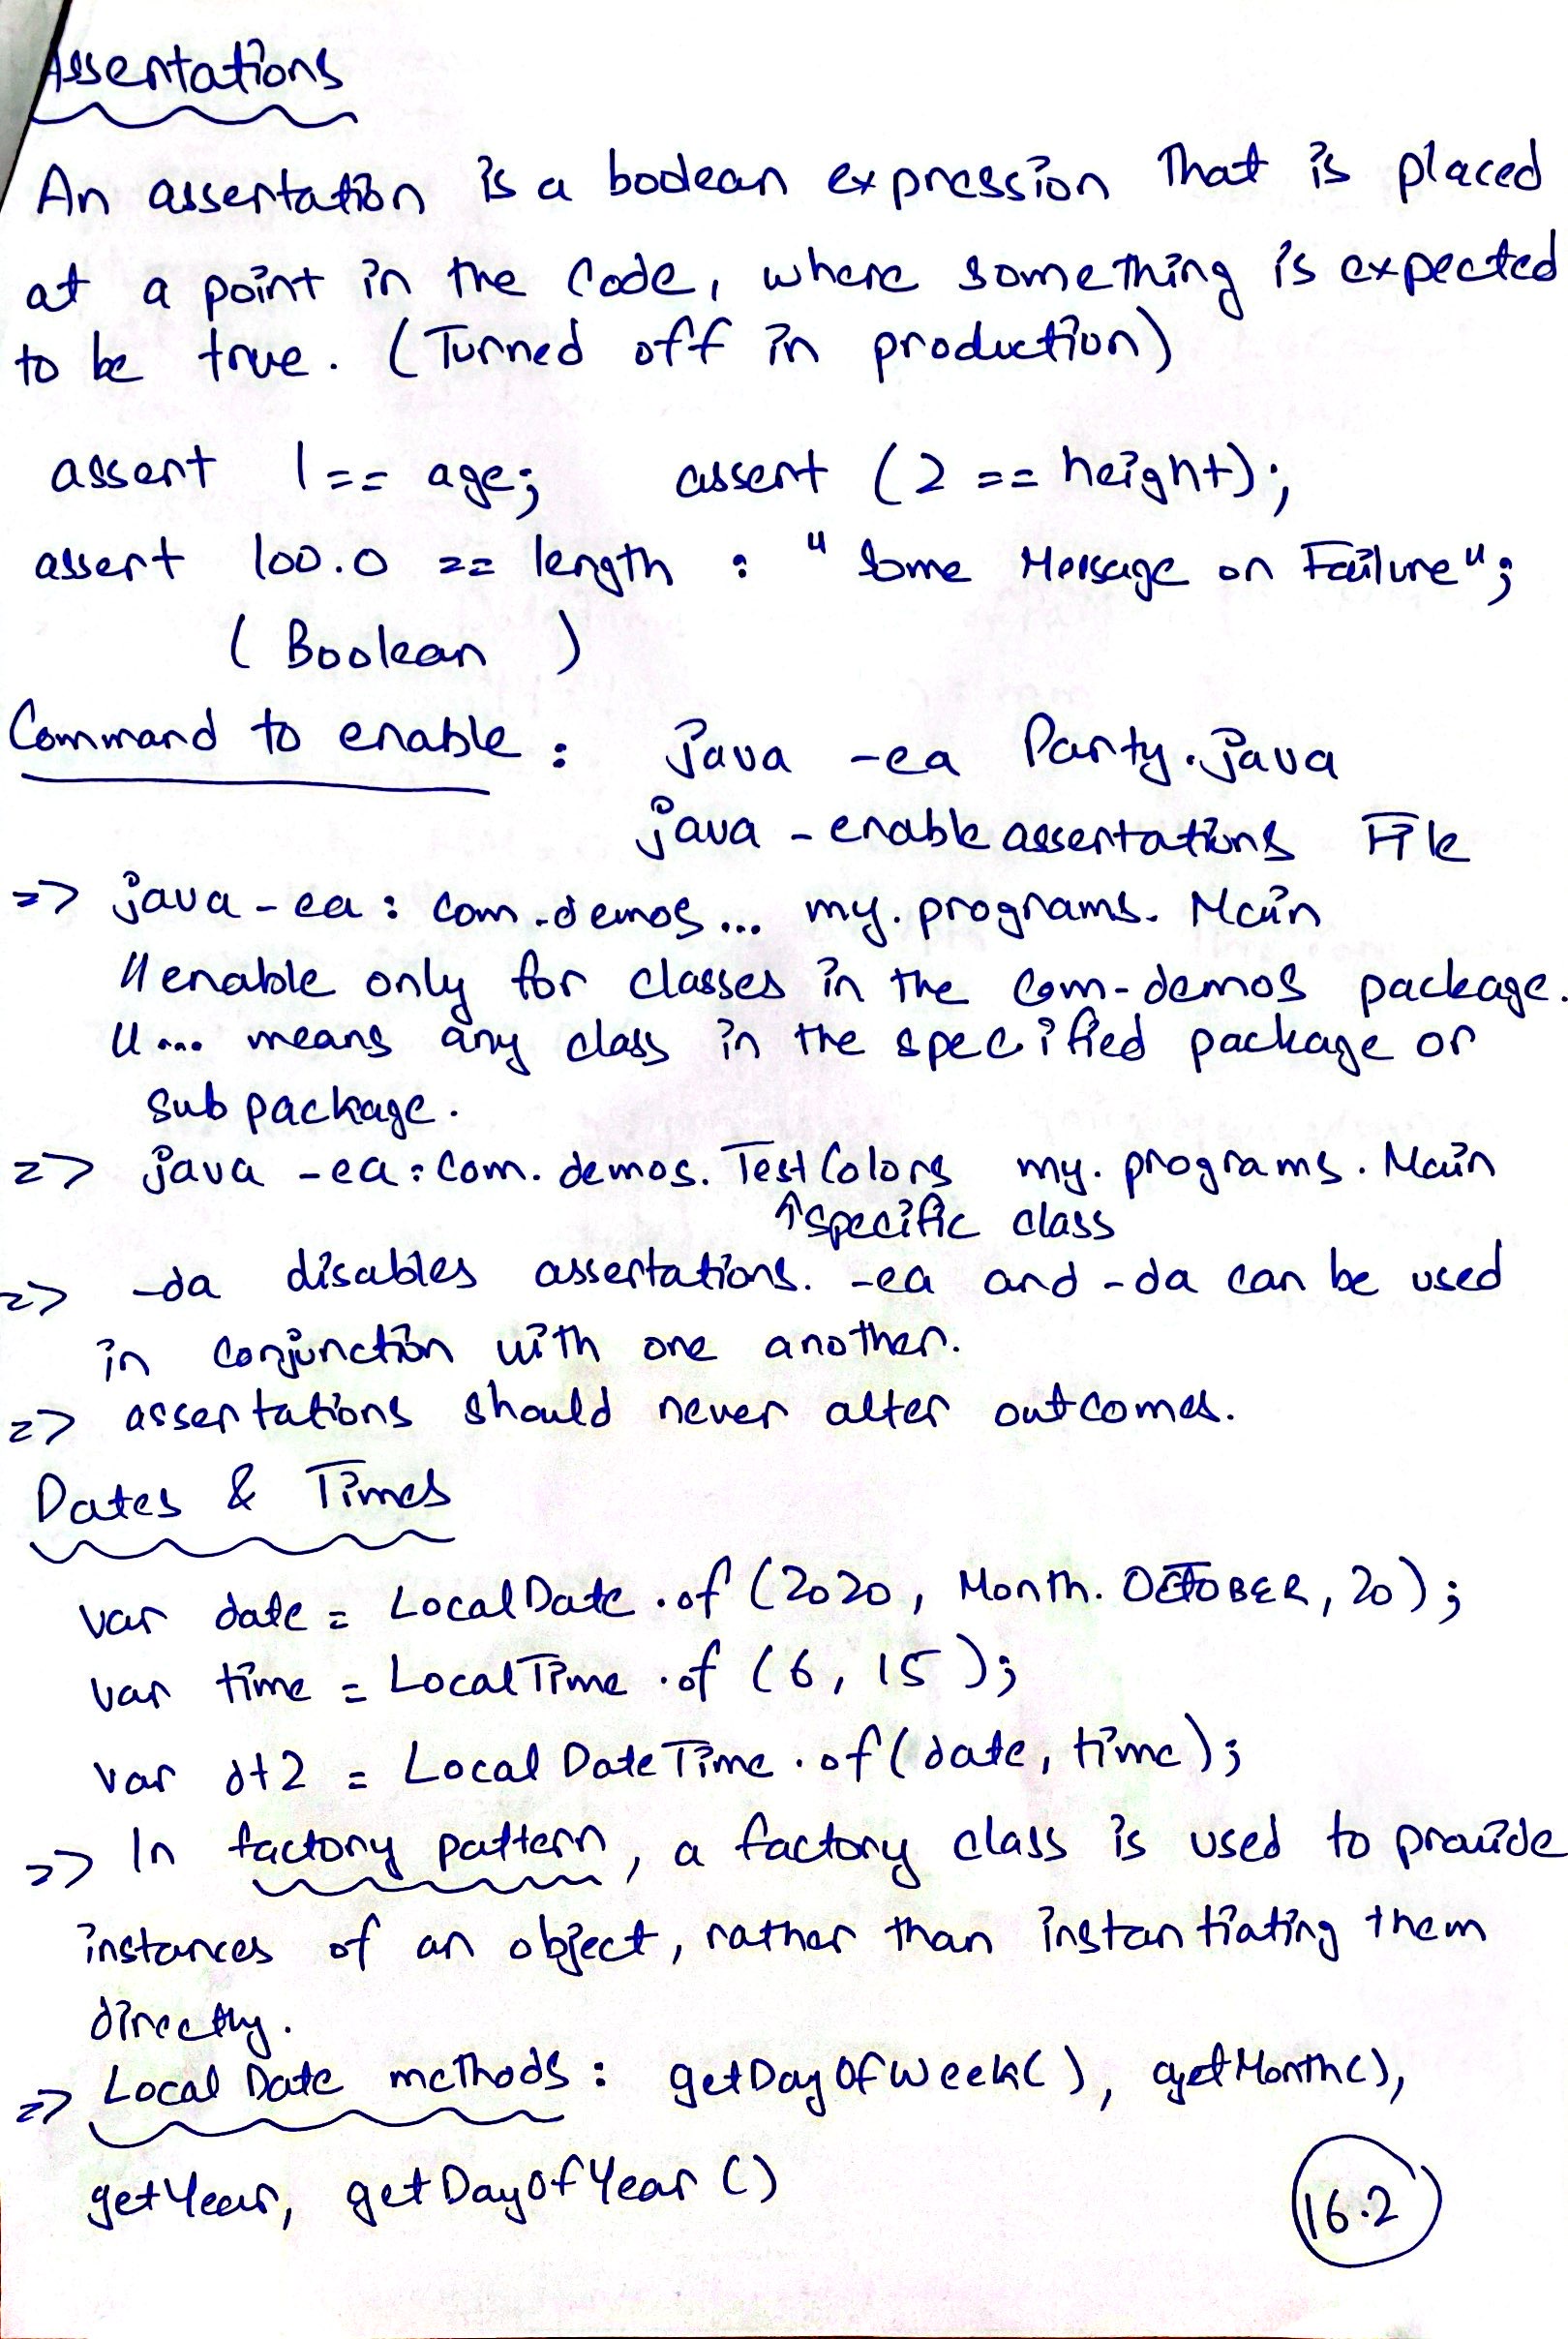 Assertations
An assertation is a boolean expression that is placed
at a point in the code, where something is expected
to be true. (Turned off in production)
assert 1 == age; assert (2 == height);
assert 100.0 == length : "Some Message on Failure";
( Boolean )
Command to enable : java -ea Party.java
java -enable assertations File
=> java -ea : com.demos... my.programs.Main
// enable only for classes in the com-demos package.
// ... means any class in the specified package or
sub package.
=> java -ea : com.demos.TestColors my.programs.Main
↑ specific class
=> -da disables assertations. -ea and -da can be used
in conjunction with one another.
=> assertations should never alter outcomes.
Dates & Times
var date = LocalDate.of (2020, Month.OCTOBER, 20);
var time = LocalTime.of (6, 15);
var dt2 = LocalDateTime.of(date, time);
=> In factory pattern, a factory class is used to provide
instances of an object, rather than instantiating them
directly.
=> Local Date methods : getDayOfWeek(), getMonth(),
getYear, getDayOfYear ()
16.2